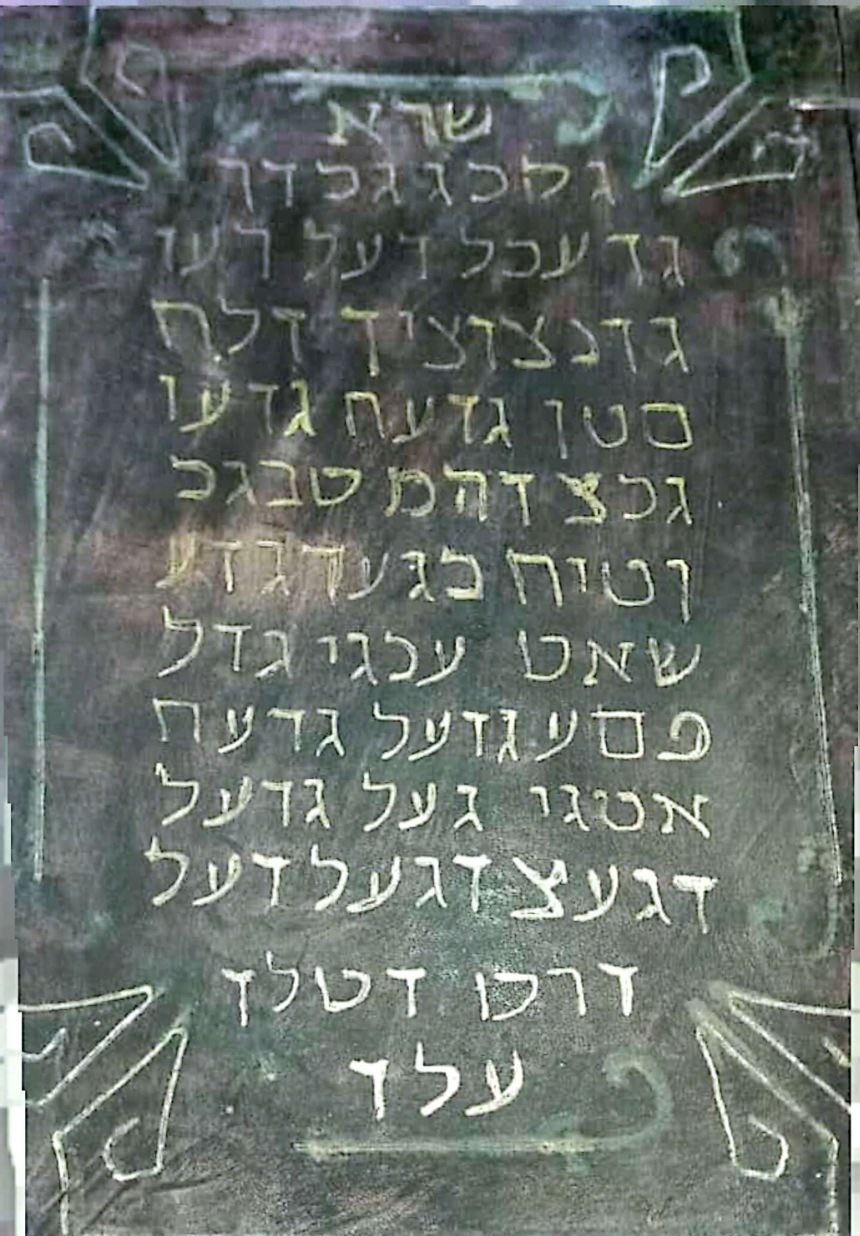 שרא
גםכגגכדך
גד עכל דעל רעו
גדנצוציד דלח
סטן גדעח גדעו
גכצ דהמ טבגכ
וטיח כגעדגדע
שאט עכגי גדל
פםע גדעל גדעח
אטגי געל גדעל
דגעצ דגעל דעל
דרכו דטלד
עלד